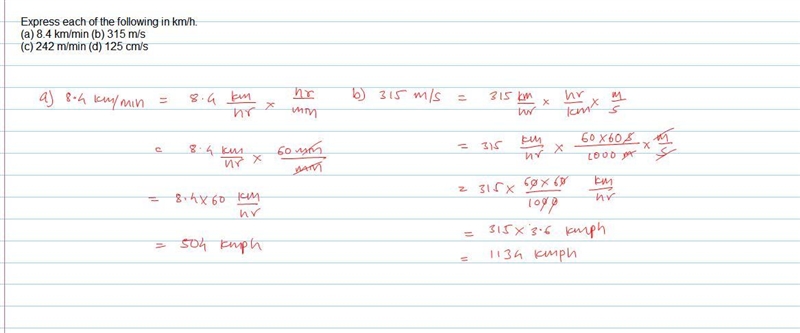 Express each of the following in km/h.
(a) 8.4 km/min (b) 315 m/s
(c) 242 m/min (d) 125 cm/s
a) 8.4 km/min = 8.4 km/hr × hr/min
= 8.4 km/hr × 60 min/min
= 8.4×60 km/hr
= 504 kmph
b) 315 m/s = 315 km/hr × hr/km × m/s
= 315 km/hr × 60×60 s/1000 m × m/s
= 315 × 60×60/1000 km/hr
= 315 × 3.6 kmph
= 1134 kmph